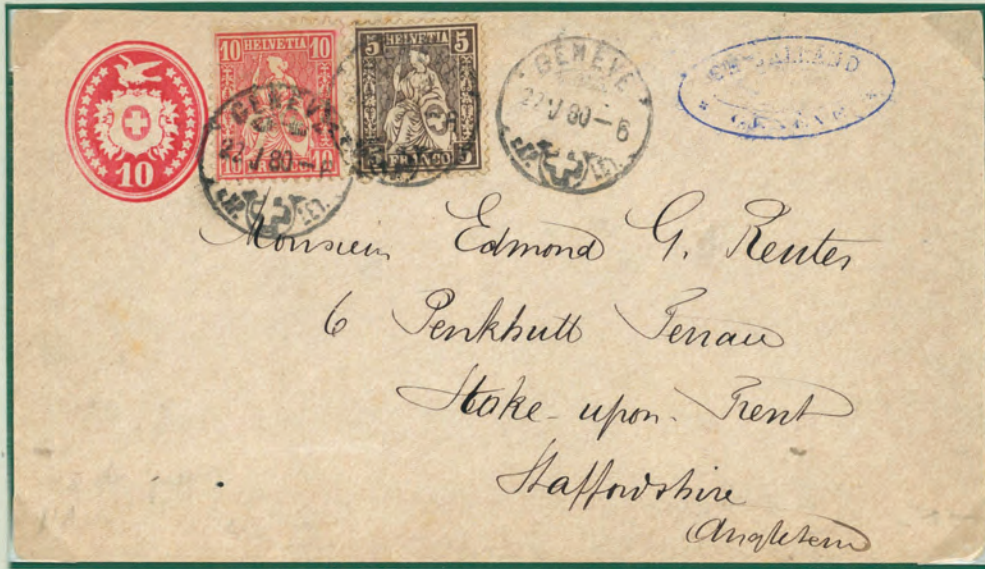 10
10 HELVETIA 10
10 FRANCO 10
5 HELVETIA 5
5 FRANCO 5
GENÈVE
22 V 80 – 6
EXP. LET.
GENÈVE
22 V 80 – 6
EXP. LET.
GENÈVE
Monsieur Edmond G. Reuter
6 Penkhull Terrace
Stoke-upon-Trent
Staffordshire
Angleterre